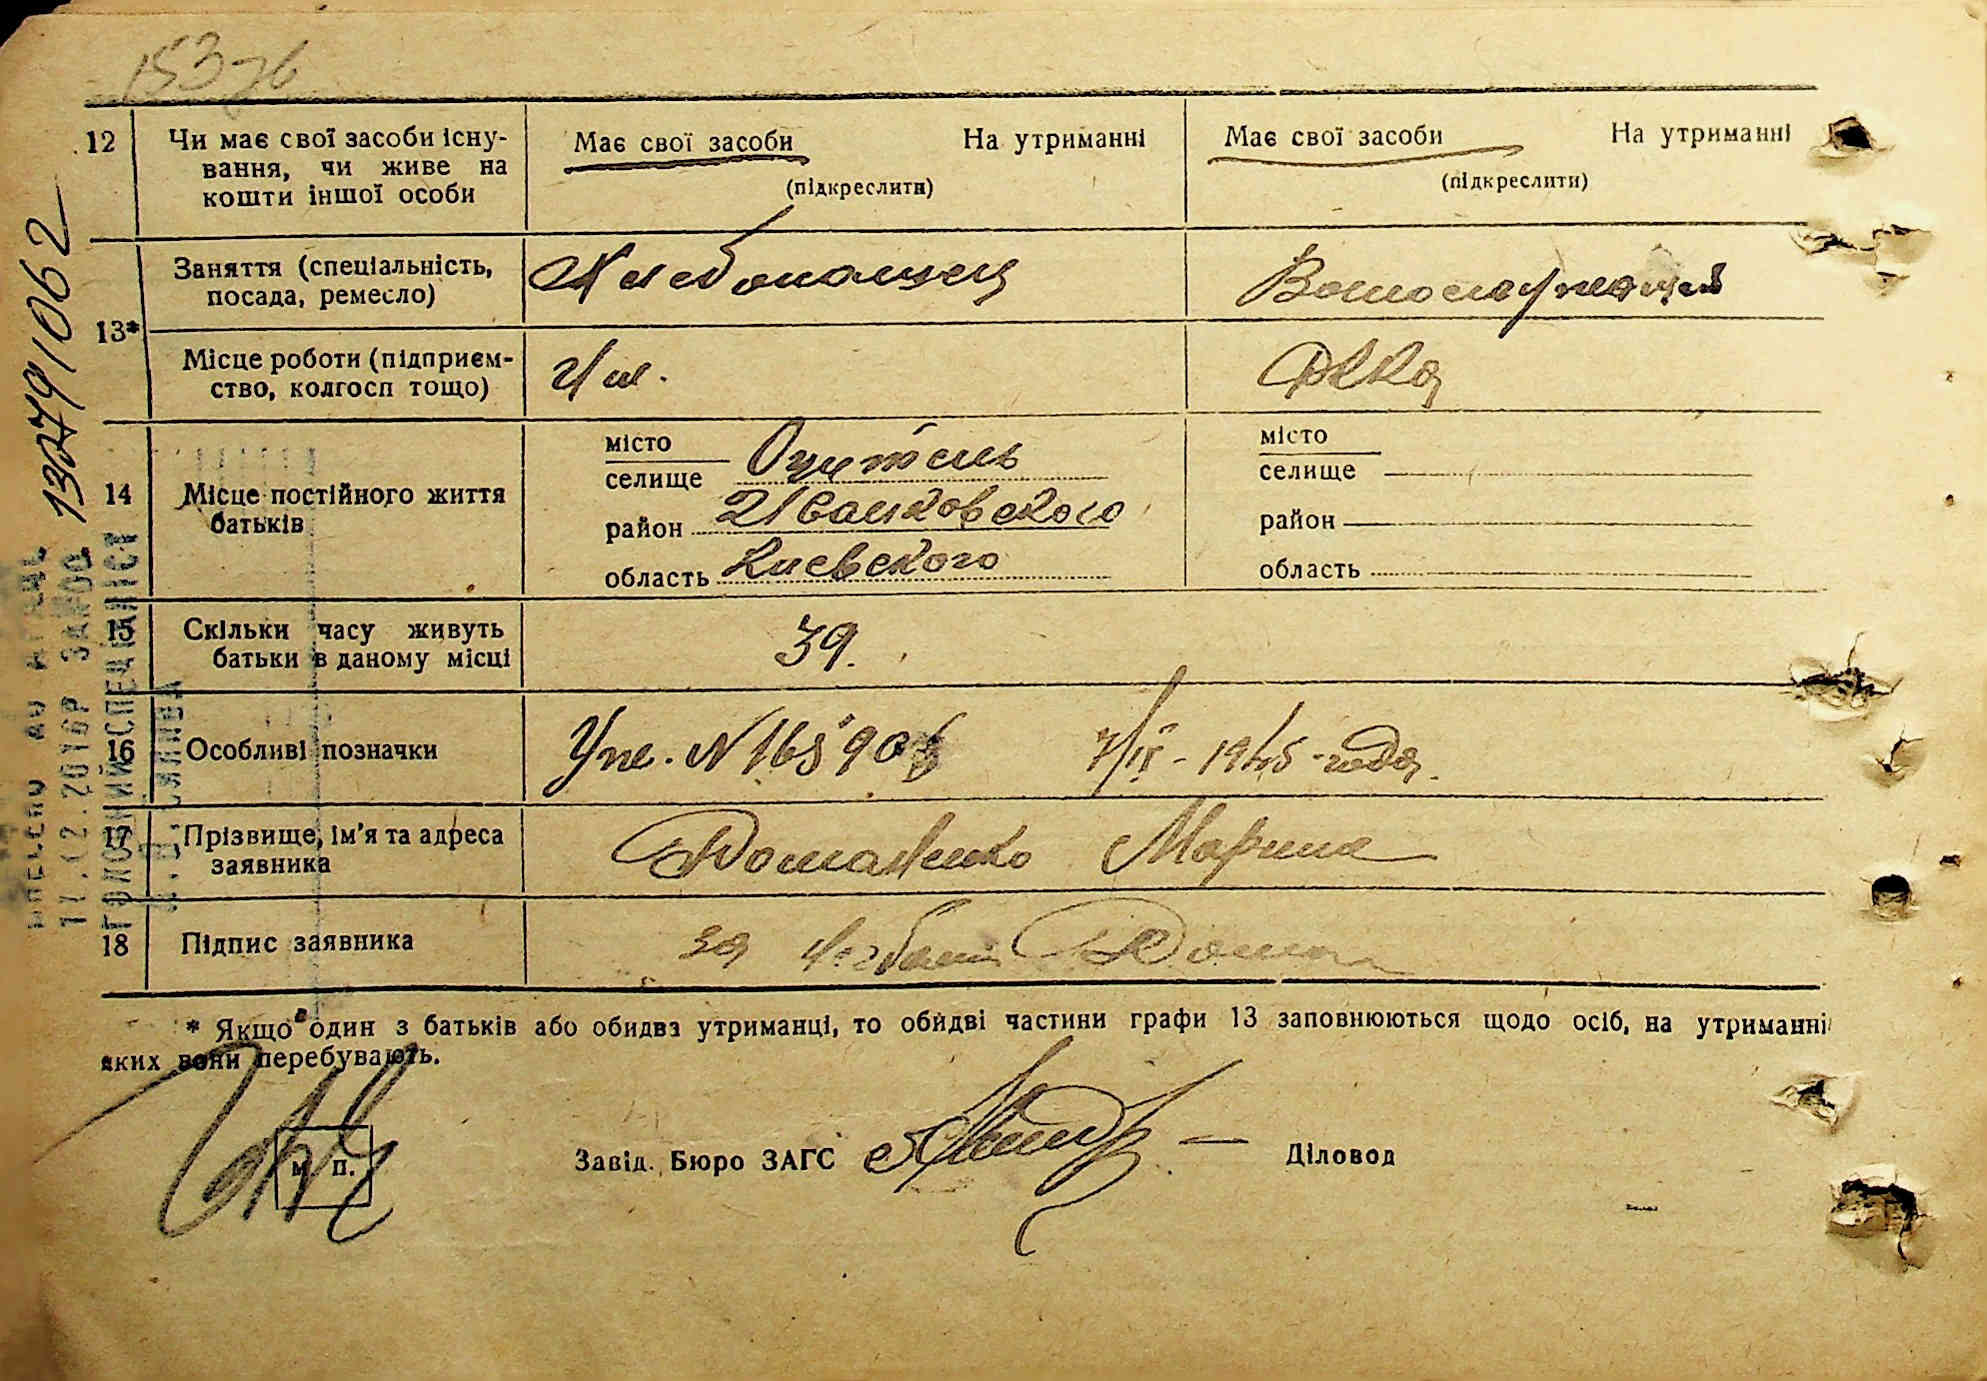 15376
1379/062
12 Чи має свої засоби існу-
вання, чи живе на
кошти іншої особи
Має свої засоби На утриманні
(підкреслити)
Має свої засоби На утриманні
(підкреслити)
13*
Заняття (спеціальність,
посада, ремесло)
Хлебопашец
Военослужащий
Місце роботи (підприєм-
ство, колгосп тощо)
РККА
14 Місце постійного життя
батьків
місто
селище
район Иванковского
область Киевского
місто
селище
район
область
15 Скільки часу живуть
батьки в даному місці
39.
16 Особливі позначки
7/IX - 1945 - года.
17 Прізвище, ім'я та адреса
заявника
Домаленко Марина
18 Підпис заявника
за
* Якщо один з батьків або обидва утриманці, то обидві частини графи 13 заповнюються щодо осіб, на утриманні
яких вони перебувають.
М. П.
Завід. Бюро ЗАГС
Діловод
ГОЛОВНИЙ СПЕЦІАЛІСТ